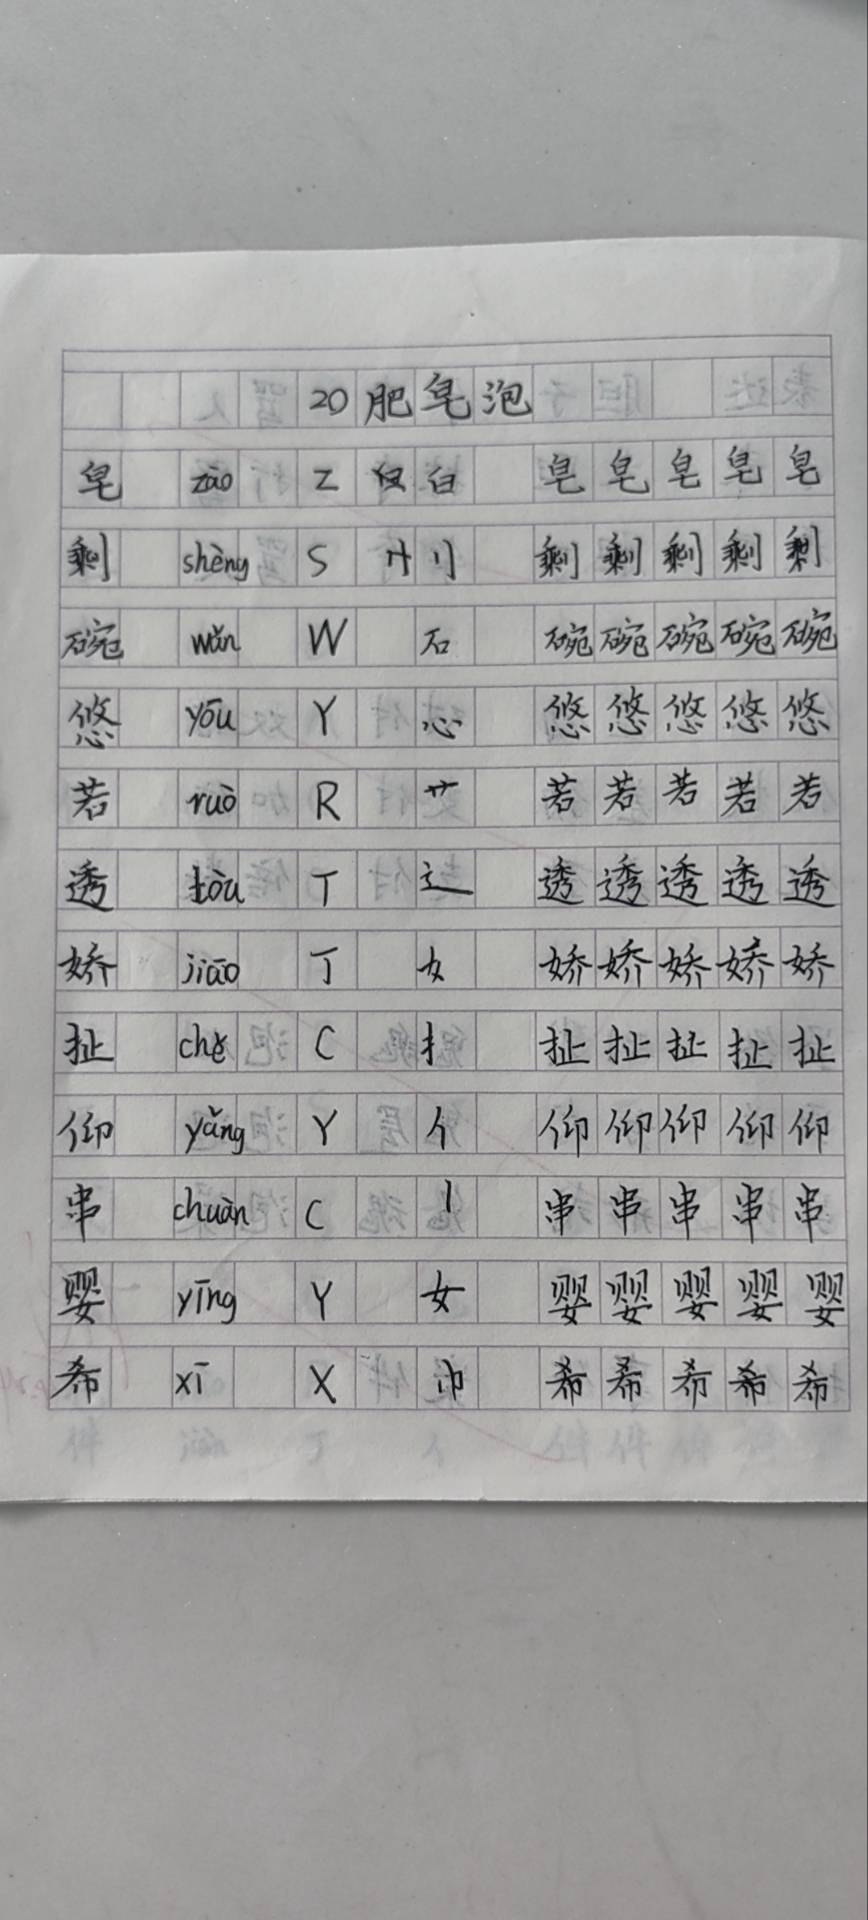 20肥皂泡
皂 zào Z 白 皂 皂 皂 皂 皂
剩 shèng S 刂 剩 剩 剩 剩 剩
碗 wǎn W 石 碗 碗 碗 碗 碗
悠 yōu Y 心 悠 悠 悠 悠 悠
若 ruò R 艹 若 若 若 若 若
透 tòu T 辶 透 透 透 透 透
娇 jiāo J 女 娇 娇 娇 娇 娇
扯 chě C 扌 扯 扯 扯 扯 扯
仰 yǎng Y 亻 仰 仰 仰 仰 仰
串 chuàn C 丨 串 串 串 串 串
婴 yīng Y 女 婴 婴 婴 婴 婴
希 xī X 巾 希 希 希 希 希